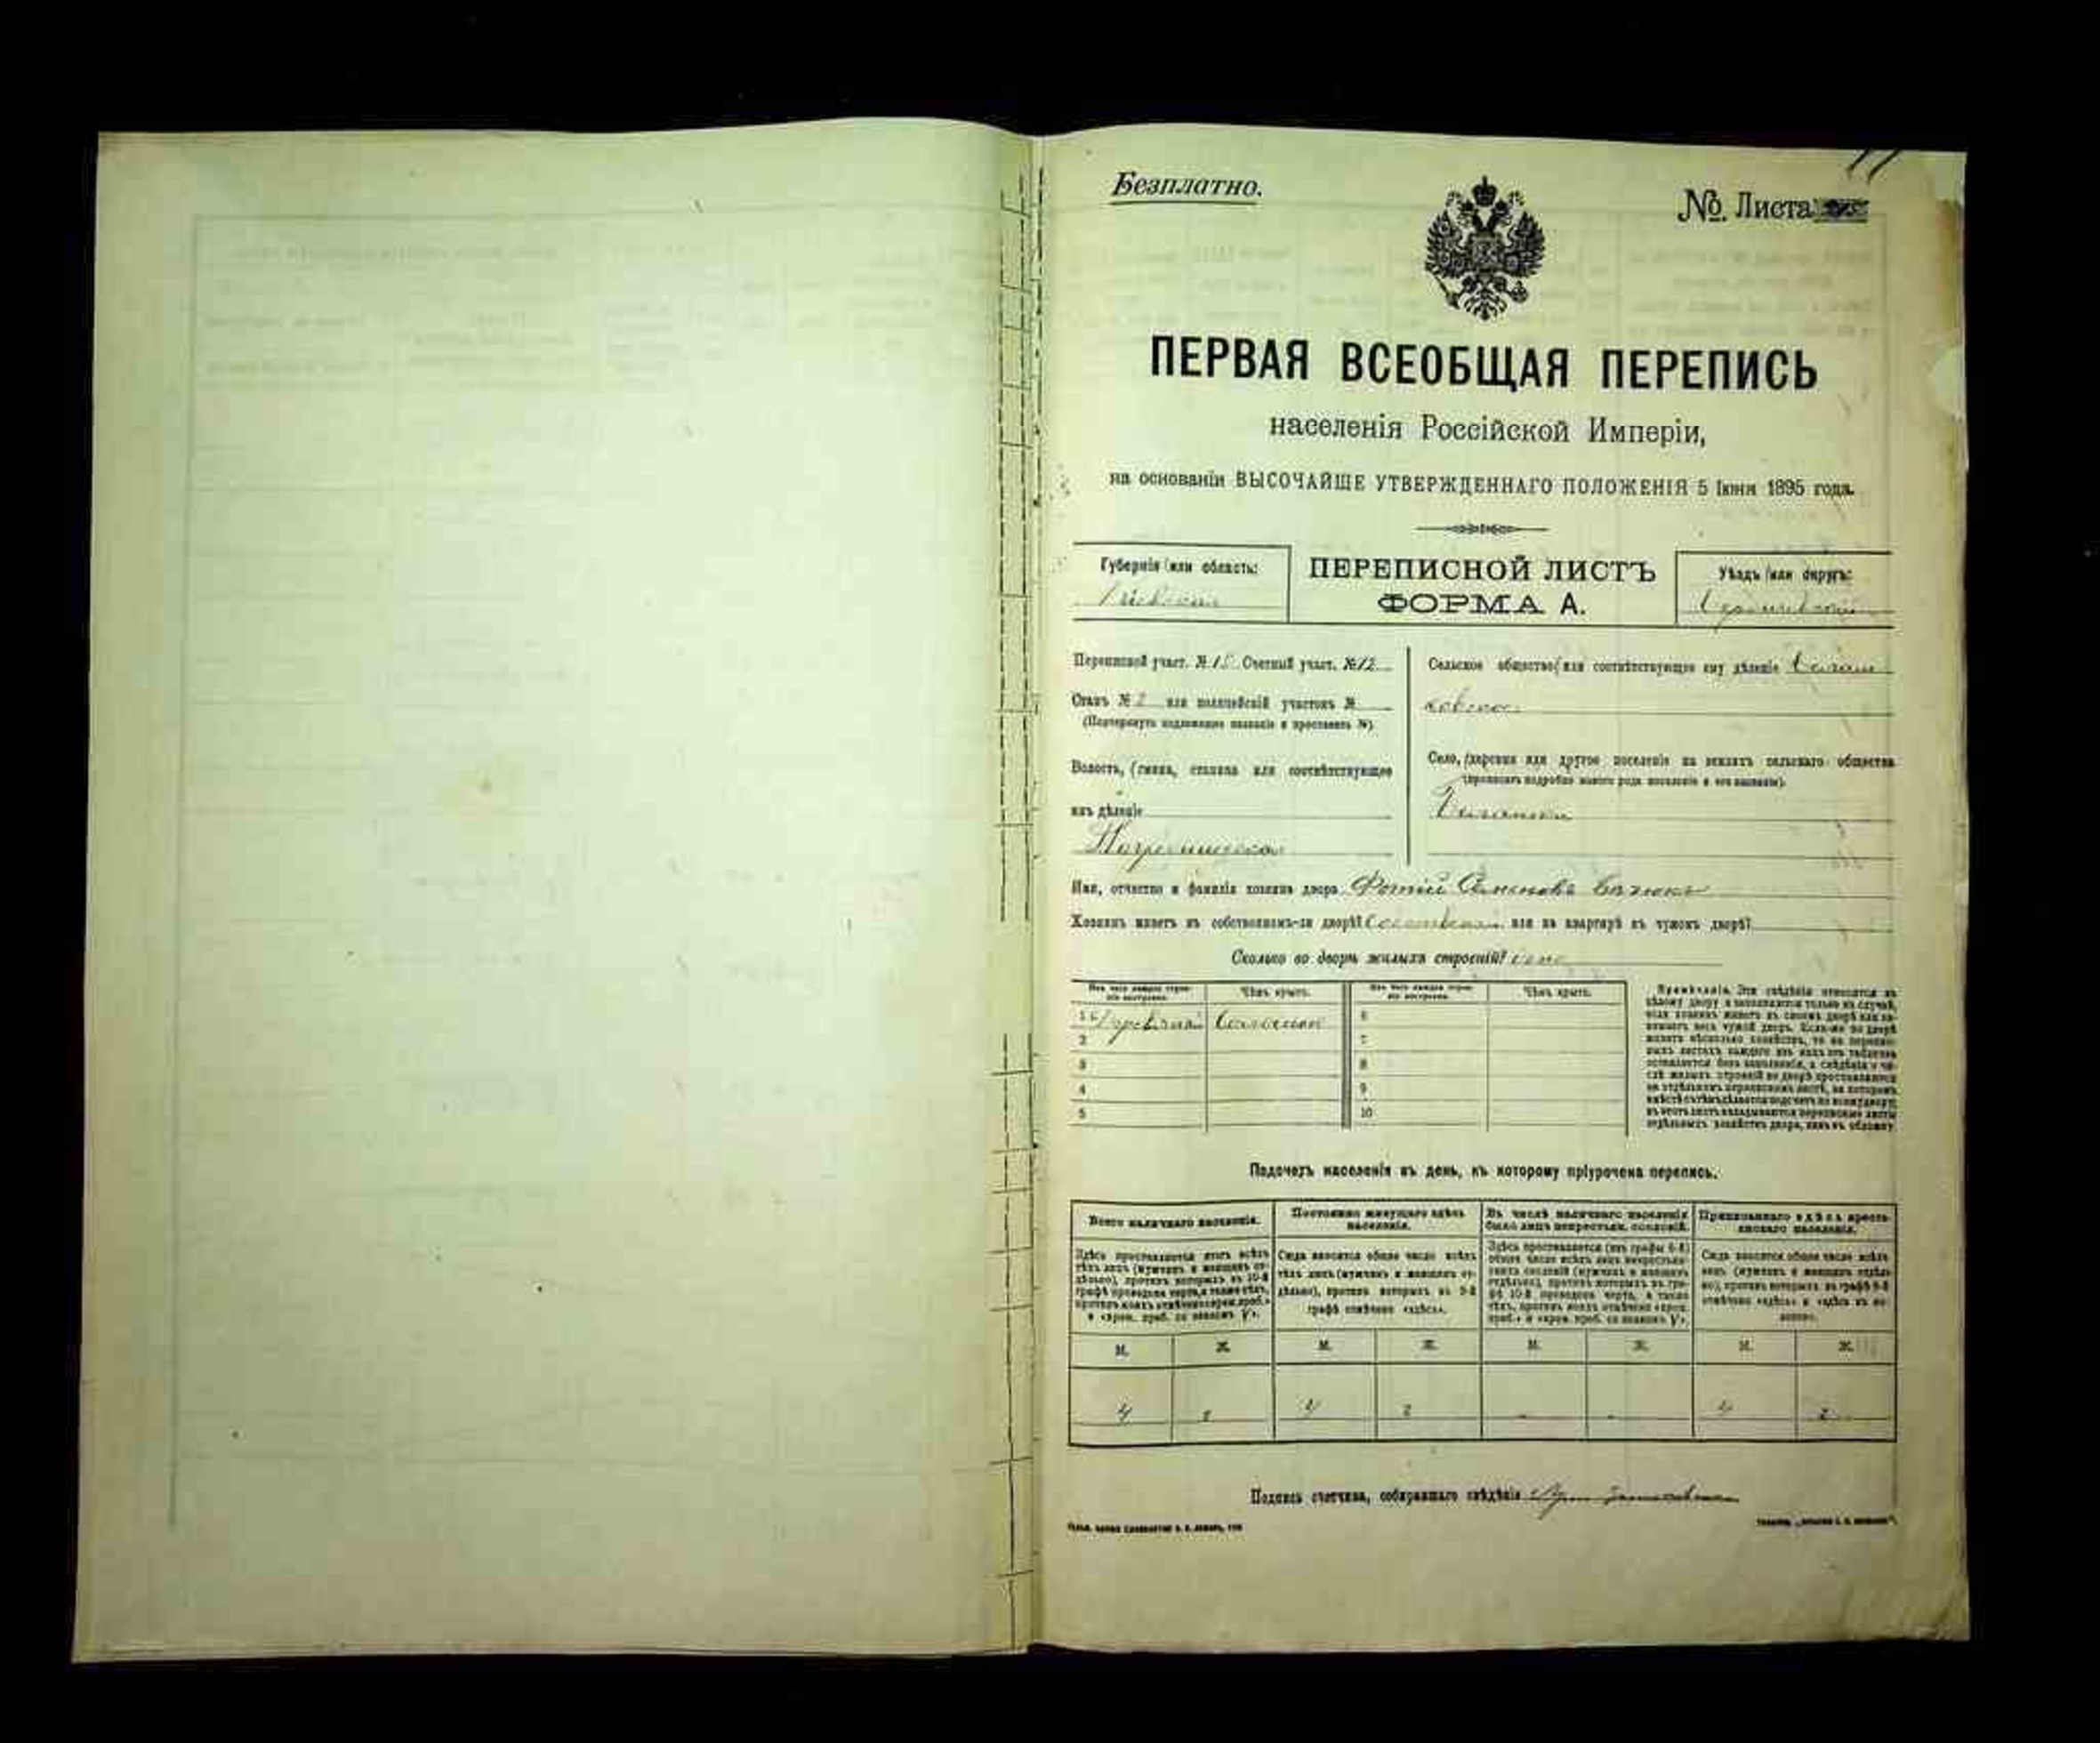 Безплатно.
№ Листа
ПЕРВАЯ ВСЕОБЩАЯ ПЕРЕПИСЬ
населенія Россійской Имперіи,
на основаніи ВЫСОЧАЙШЕ УТВЕРЖДЕННАГО ПОЛОЖЕНІЯ 5 Іюня 1895 года.
Губернія (или область:
ПЕРЕПИСНОЙ ЛИСТЪ
ФОРМА А.
Уѣздъ (или округъ:
Переписной участ. № 15 Счетный участ. № 12
Станъ № 2 или полицейскій участокъ №
(Подчеркнуть надлежащее названіе и проставить №)
Волость, (гмина, станица или соотвѣтствующее
имъ дѣленіе
Сельское общество (или соотвѣтствующее ему дѣленіе
Село, (деревня или другое поселеніе на земляхъ сельскаго общества
(прописать подробно какого рода поселеніе и его названіе).
Имя, отчество и фамилія хозяина двора Фотій Семеновъ
Хозяинъ живетъ въ собственномъ-ли дворѣ? или на квартирѣ въ чужомъ дворѣ?
Сколько во дворѣ жилыхъ строеній? одно
Изъ чего каждое строеніе построено. Чѣмъ крыто. Изъ чего каждое строеніе построено. Чѣмъ крыто.
1 6
2 7
3 8
4 9
5 10
Примѣчаніе. Эти свѣдѣнія относятся къ
цѣлому двору и заполняются только въ случаѣ,
если хозяинъ живетъ въ своемъ дворѣ или за-
нимаетъ весь чужой дворъ. Если-же во дворѣ
живетъ нѣсколько хозяйствъ, то на перепис-
ныхъ листахъ каждаго изъ нихъ эта таблица
оставляется безъ заполненія, а свѣдѣнія о чи-
слѣ жилыхъ строеній во дворѣ проставляются
на отдѣльномъ переписномъ листѣ, на которомъ
вмѣстѣ съ тѣмъ дѣлается подсчетъ по всему двору;
въ этотъ листъ вкладываются переписные листы
отдѣльныхъ хозяйствъ двора, какъ въ обложку.
Подсчетъ населенія въ день, къ которому пріурочена перепись.
Всего наличнаго населенія.
Здѣсь проставляется итогъ всѣхъ
тѣхъ лицъ (мужчинъ и женщинъ от-
дѣльно), противъ которыхъ въ 10-й
графѣ проведена черта, а также тѣхъ,
противъ коихъ отмѣчено «врем. преб.»
и «врем. преб. со знакомъ V».
Постоянно живущаго здѣсь
населенія.
Сюда вносится общее число всѣхъ
тѣхъ лицъ (мужчинъ и женщинъ от-
дѣльно), противъ которыхъ въ 9-й
графѣ отмѣчено «здѣсь».
Въ числѣ наличнаго населенія
было лицъ некрестьян. сословій.
Здѣсь проставляется (изъ графы 6-й)
общее число всѣхъ лицъ некрестьян-
скихъ сословій (мужчинъ и женщинъ
отдѣльно), противъ которыхъ въ гра-
фѣ 10-й проведена черта, а также
тѣхъ, противъ коихъ отмѣчено «врем.
преб.» и «врем. преб. со знакомъ V».
Приписаннаго здѣсь кресть-
янскаго населенія.
Сюда вносится общее число всѣхъ
лицъ (мужчинъ и женщинъ отдѣль-
но), противъ которыхъ въ графѣ 8-й
отмѣчено «здѣсь» и «здѣсь въ во-
лости».
М. Ж. М. Ж. М. Ж. М. Ж.
4 2 4 2 - - 4 2
Подпись счетчика, собиравшаго свѣдѣнія